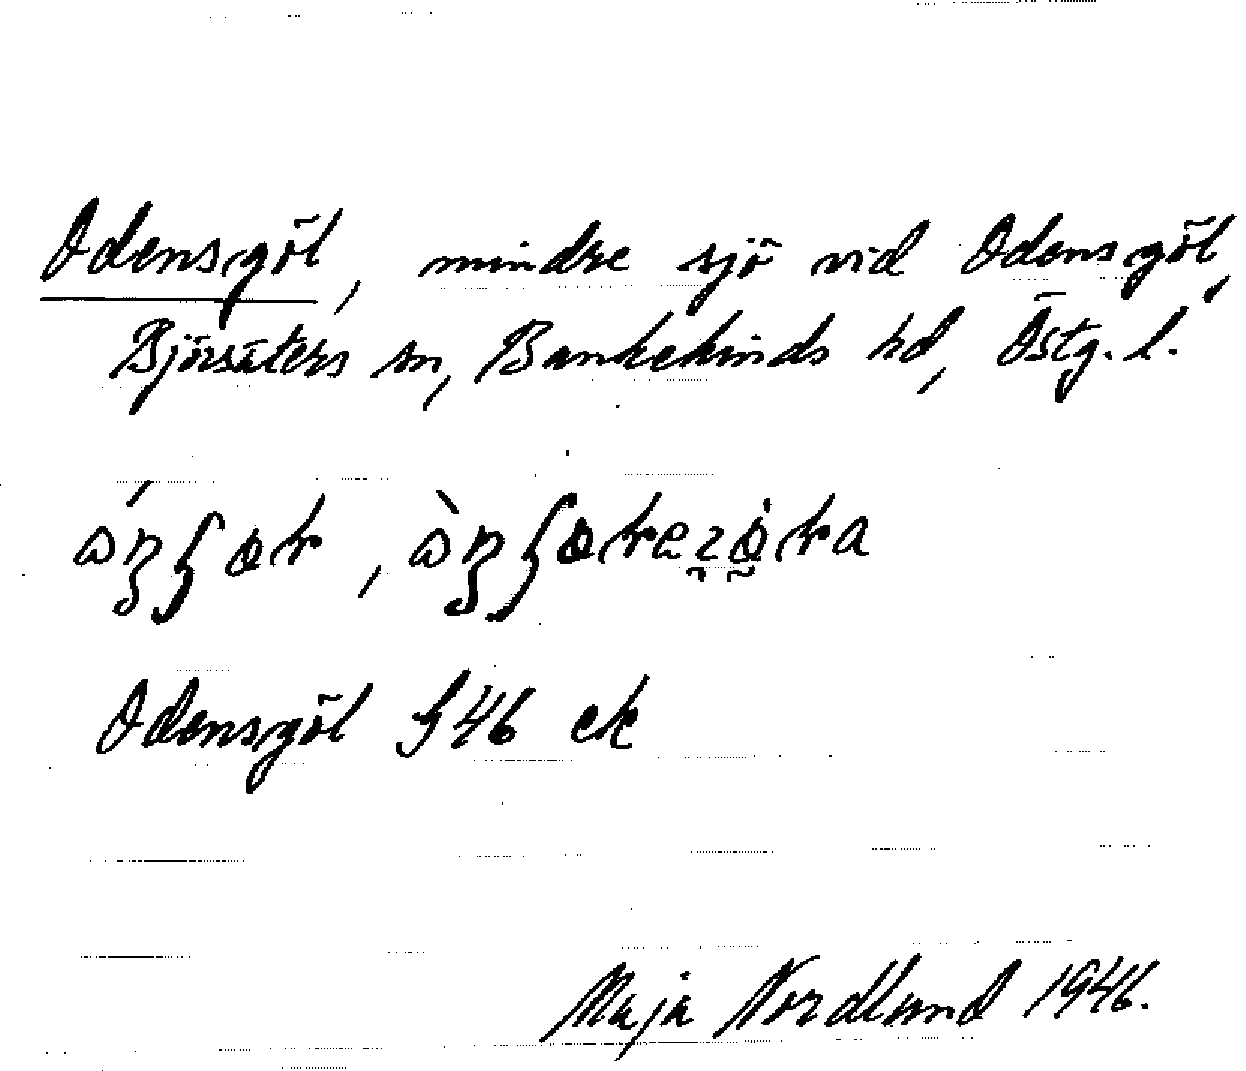 Odensgöl, mindre sjö vid Odensgöl,
Björsäters sn, Bankekinds hd, Östg. l.
Odensgöl G46 ek
Maja Nordlund 1946.